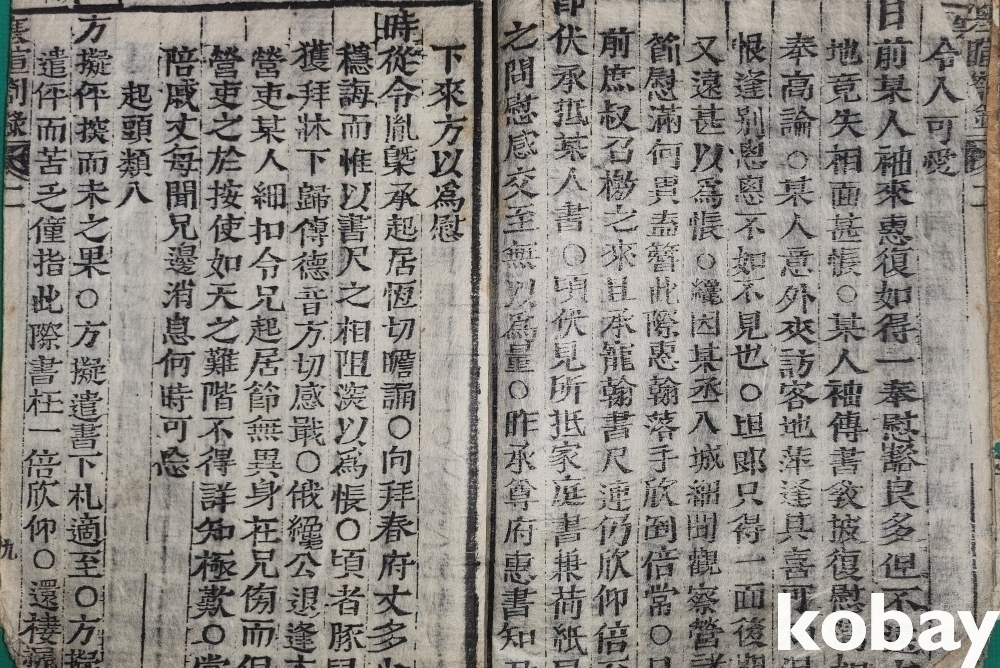 令人可愛
目前某人袖來惠復如得一奉慰豁良多但不
地竟失相面甚悵○某人袖傳書發披復慰
奉高論○某人意外來訪客地萍逢其喜可
恨逢別悤悤不如不見也○坦郞只得一面後
又遠甚以爲悵○纔因某丞入城細聞觀察營
節慰滿何異盍簪此際惠翰落手欣倒倍常○
前庶叔召櫟之來且承寵翰書尺連仍欣仰倍
伏承抵某人書○頃伏見所抵家庭書兼荷紙
之問慰感交至無以爲量○昨承尊府惠書知
下來方以爲慰
時從令胤槩承起居恆切瞻誦○向拜春府丈多少
穩誨而惟以書尺之相阻深以爲悵○頃者豚
獲拜牀下歸傳德音方切感戢○俄纔公退逢
營吏某人細扣令兄起居節無異身在兄傍而
營吏之於按使如天之難階不得詳知極歎○
陪戚丈每聞兄邊消息何時可忘
起頭類八
方擬伻探而未之果○方擬遣書下札適至○方擬
遣伻而苦乏僮指此際書枉一倍欣仰○還棲
寒暄箚錄
二
九
kobay